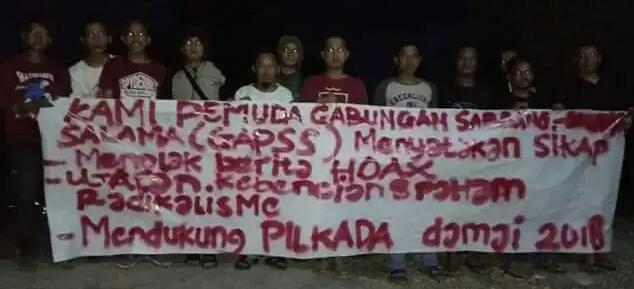 KAMI PEMUDA GABUNGAN
SALAMA (GAPSS) Menyatakan SIKAP
- Menolak berita HOAX
- UJARAN.kebencian & PAHAM
RadikalisMe
- Mendukung PILKADA damai 2018